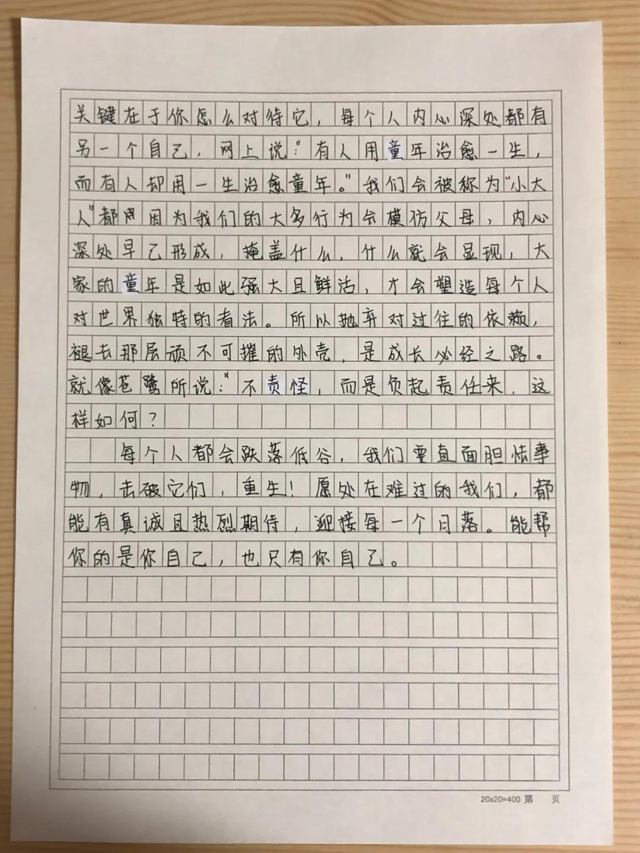 关键在于你怎么对待它，每个人内心深处都有
另一个自己，网上说："有人用童年治愈一生，
而有人却用一生治愈童年。"我们会被称为"小大
人"都因为我们的大多行为会模仿父母，内心
深处早己形成，掩盖什么，什么就会显现，大
家的童年是如此强大且鲜活，才会塑造每个人
对世界独特的看法。所以抛弃对过往的依赖，
褪去那层顽不可摧的外壳，是成长必经之路。
就像苍鹭所说："不责怪，而是负起责任来，这
样如何？
每个人都会跌落低谷，我们要直面胆怯事
物，击破它们，重生！愿处在难过的我们，都
能有真诚且热烈期待，迎接每一个日落。能帮
你的是你自己，也只有你自己。
20x20=400 第 页